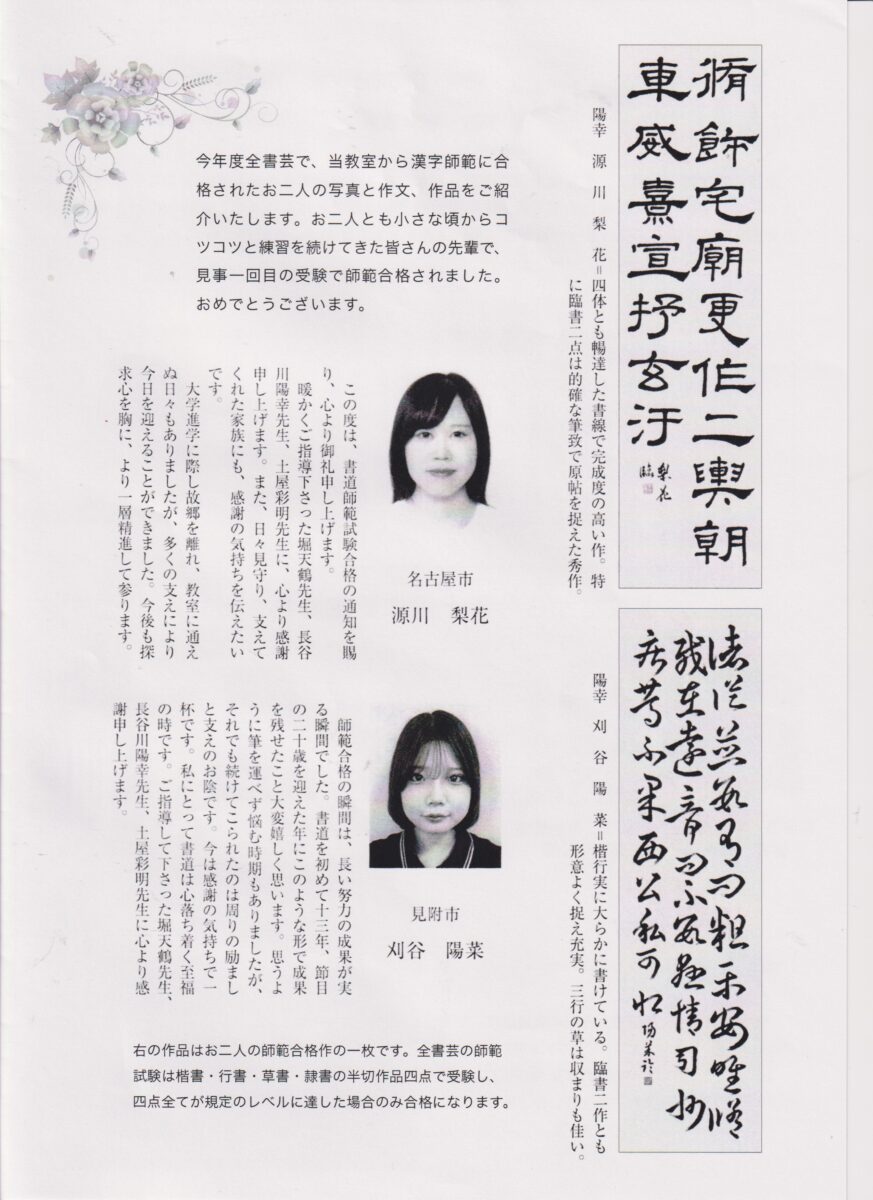 脩飾宅廟更作二輿朝
車威熹宣抒玄汙
梨花
臨
陽幸 源川梨花=四体とも暢達した書線で完成度の高い作。特
に臨書二点は的確な筆致で原帖を捉えた秀作。
今年度全書芸で、当教室から漢字師範に合
格されたお二人の写真と作文、作品をご紹
介いたします。お二人とも小さな頃からコ
ツコツと練習を続けてきた皆さんの先輩で、
見事一回目の受験で師範合格されました。
おめでとうございます。
名古屋市
源川 梨花
この度は、書道師範試験合格の通知を賜
り、心より御礼申し上げます。
暖かくご指導下さった堀天鶴先生、長谷
川陽幸先生、土屋彩明先生に、心より感謝
申し上げます。また、日々見守り、支えて
くれた家族にも、感謝の気持ちを伝えたい
です。
大学進学に際し故郷を離れ、教室に通え
ぬ日々もありましたが、多くの支えにより
今日を迎えることができました。今後も探
求心を胸に、より一層精進して参ります。
陽幸 刈谷陽菜=楷行実に大らかに書けている。臨書二作とも
形意よく捉え充実。三行の草は収まりも佳い。
見附市
刈谷 陽菜
師範合格の瞬間は、長い努力の成果が実
る瞬間でした。書道を初めて十三年、節目
の二十歳を迎えた年にこのような形で成果
を残せたこと大変嬉しく思います。思うよ
うに筆を運べず悩む時期もありましたが、
それでも続けてこられたのは周りの励まし
と支えのお陰です。今は感謝の気持ちで一
杯です。私にとって書道は心落ち着く至福
の時です。ご指導して下さった堀天鶴先生、
長谷川陽幸先生、土屋彩明先生に心より感
謝申し上げます。
右の作品はお二人の師範合格作の一枚です。全書芸の師範
試験は楷書・行書・草書・隷書の半切作品四点で受験し、
四点全てが規定のレベルに達した場合のみ合格になります。